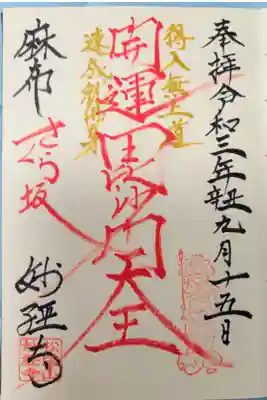 奉拝 令和三年辛丑九月十五日
得入無上道
速成就佛身
開運毘沙門天王
麻布
さくら坂
妙經寺